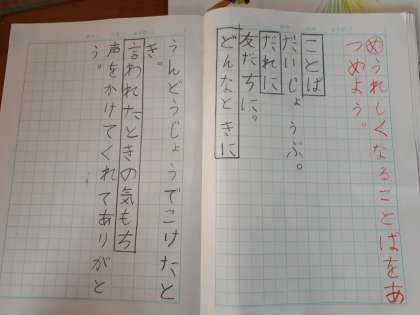 めうれしくなることばをあ
つめよう。
ことば
だいじょうぶ。
だれに
友だちに。
どんなときに
うんどうじょうでこけたと
き。
言われたときの気もち
声をかけてくれてありがと
う。